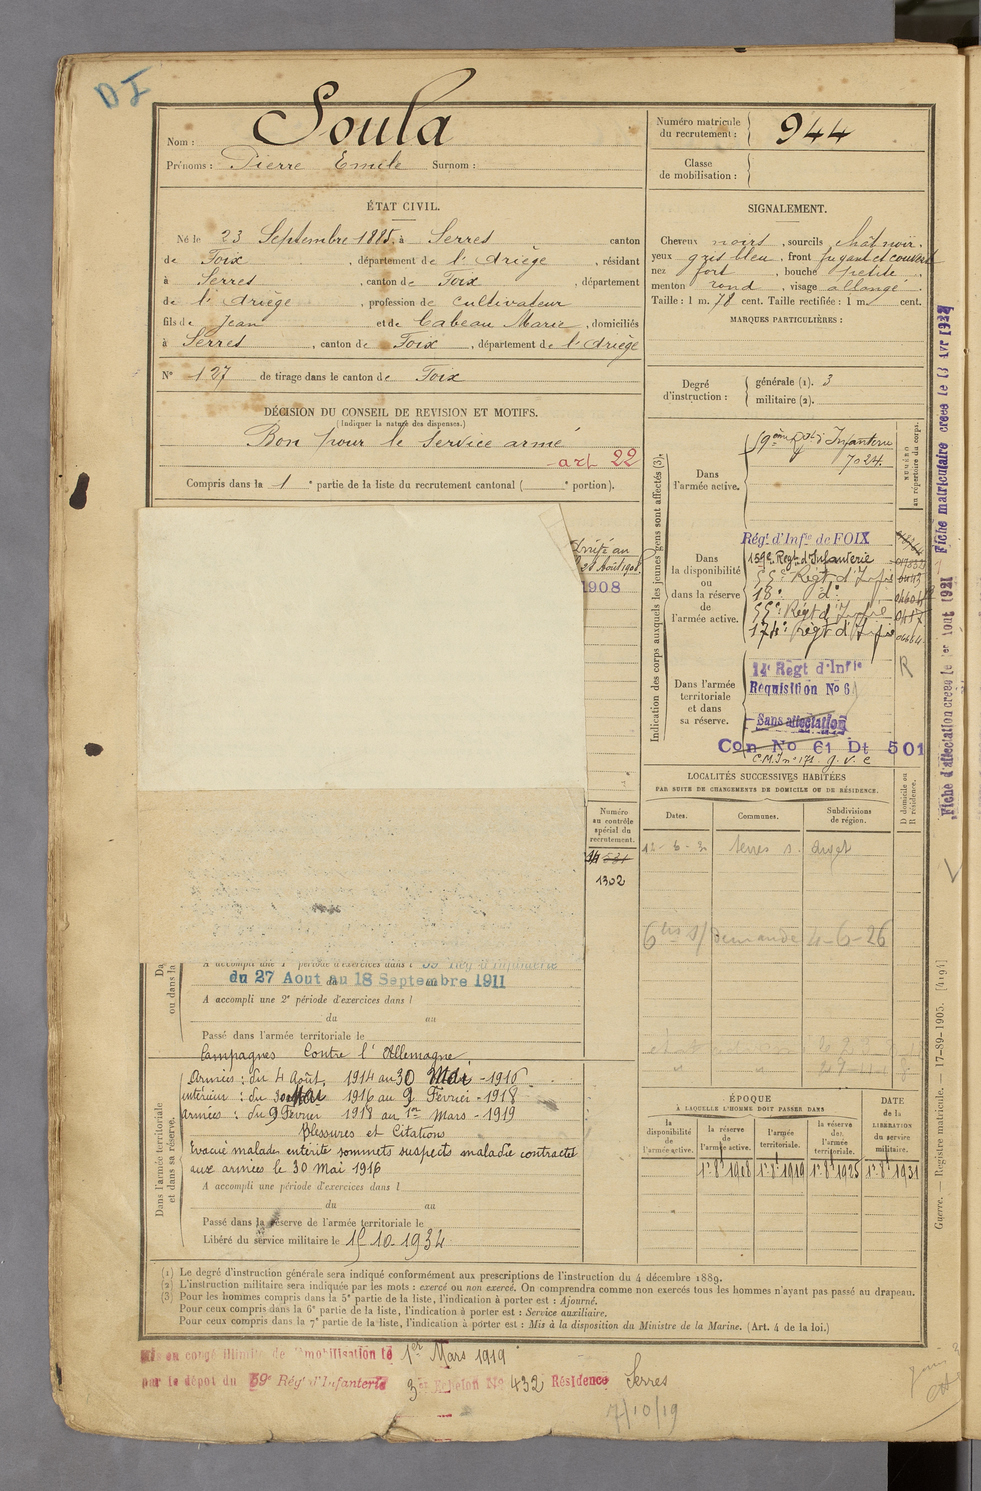 DI
Nom : Soula
Prénoms : Pierre Emile Surnom :
Numéro matricule du recrutement : 944
Classe de mobilisation :
ÉTAT CIVIL.
Né le 23 Septembre 1885, à Serres canton
de Foix, département de l'Ariège, résidant
à Serres, canton de Foix, département
de l'Ariège, profession de Cultivateur
fils de Jean et de Cabeau Marie, domiciliés
à Serres, canton de Foix, département de l'Ariège
N° 127 de tirage dans le canton de Foix
SIGNALEMENT.
Cheveux noirs, sourcils chât noir.
yeux gris bleu, front fuyant et couvert
nez fort, bouche petite.
menton rond, visage allongé.
Taille : 1 m. 78 cent. Taille rectifiée : 1 m. cent.
MARQUES PARTICULIÈRES :
Degré d'instruction : générale (1). 3
militaire (2).
DÉCISION DU CONSEIL DE REVISION ET MOTIFS.
(Indiquer la nature des dispenses.)
Bon pour le service armé
art 22
Compris dans la 1 e partie de la liste du recrutement cantonal ( e portion).
1908
Indication des corps auxquels les jeunes gens sont affectés (3).
NUMÉRO au répertoire du corps.
Dans l'armée active.
59ème Infanterie
7024.
Dans la disponibilité ou dans la réserve de l'armée active.
Rég.t d'Inf.ie de FOIX
159e Regt d'Infanterie
55e Régt d'Infie
18e d°
55e Régt d'Infie
174e Régt d'Infie
R
Dans l'armée territoriale et dans sa réserve.
14e Régt d'Infie
Réquisition No 6
Sans affectation
Con No 61 Dt 501
LOCALITÉS SUCCESSIVES HABITÉES
PAR SUITE DE CHANGEMENTS DE DOMICILE OU DE RÉSIDENCE.
D domicile ou R résidence.
Dates. Communes. Subdivisions de région.
6 demande 4-6-26
Numéro au contrôle spécial du recrutement.
1302
A accompli une 1e période d'exercices dans l 59e Rég d'Infanterie
du 27 Aout au 18 Septembre 1911
A accompli une 2e période d'exercices dans l
du au
Passé dans l'armée territoriale le
Campagnes Contre l'Allemagne
Armées : du 4 Août 1914 au 30 Mai - 1916
intérieur : du 30 Mai 1916 au 9 Février - 1918
armées : du 9 Février 1918 au 1er Mars - 1919
Blessures et Citations
Evacué malade entérite sommets suspects maladie contractée
aux armées le 30 Mai 1916
A accompli une période d'exercices dans l
du au
Passé dans la réserve de l'armée territoriale le
Libéré du service militaire le 15-10-1934
Dans l'armée territoriale et dans sa réserve.
ÉPOQUE
À LAQUELLE L'HOMME DOIT PASSER DANS
DATE de la LIBÉRATION du service militaire.
la disponibilité de l'armée active. la réserve de l'armée active. l'armée territoriale. la réserve de l'armée territoriale.
1er 8e 1908 1er 8e 1919 1er 8e 1925 1er 8e 1931
(1) Le degré d'instruction générale sera indiqué conformément aux prescriptions de l'instruction du 4 décembre 1889.
(2) L'instruction militaire sera indiquée par les mots : exercé ou non exercé. On comprendra comme non exercés tous les hommes n'ayant pas passé au drapeau.
(3) Pour les hommes compris dans la 5e partie de la liste, l'indication à porter est : Ajourné.
Pour ceux compris dans la 6e partie de la liste, l'indication à porter est : Service auxiliaire.
Pour ceux compris dans la 7e partie de la liste, l'indication à porter est : Mis à la disposition du Ministre de la Marine. (Art. 4 de la loi.)
Mis en congé illimité de démobilisation le 1er Mars 1919
par le dépot du 59e Rég d'Infanterie 3e Echelon No 432 Résidence Serres
7/10/19
Fiche d'affectation créée le 1er Aout 1921
Fiche matriculaire créée le
Guerre. — Registre matricule. — 17-89-1905. [4194]